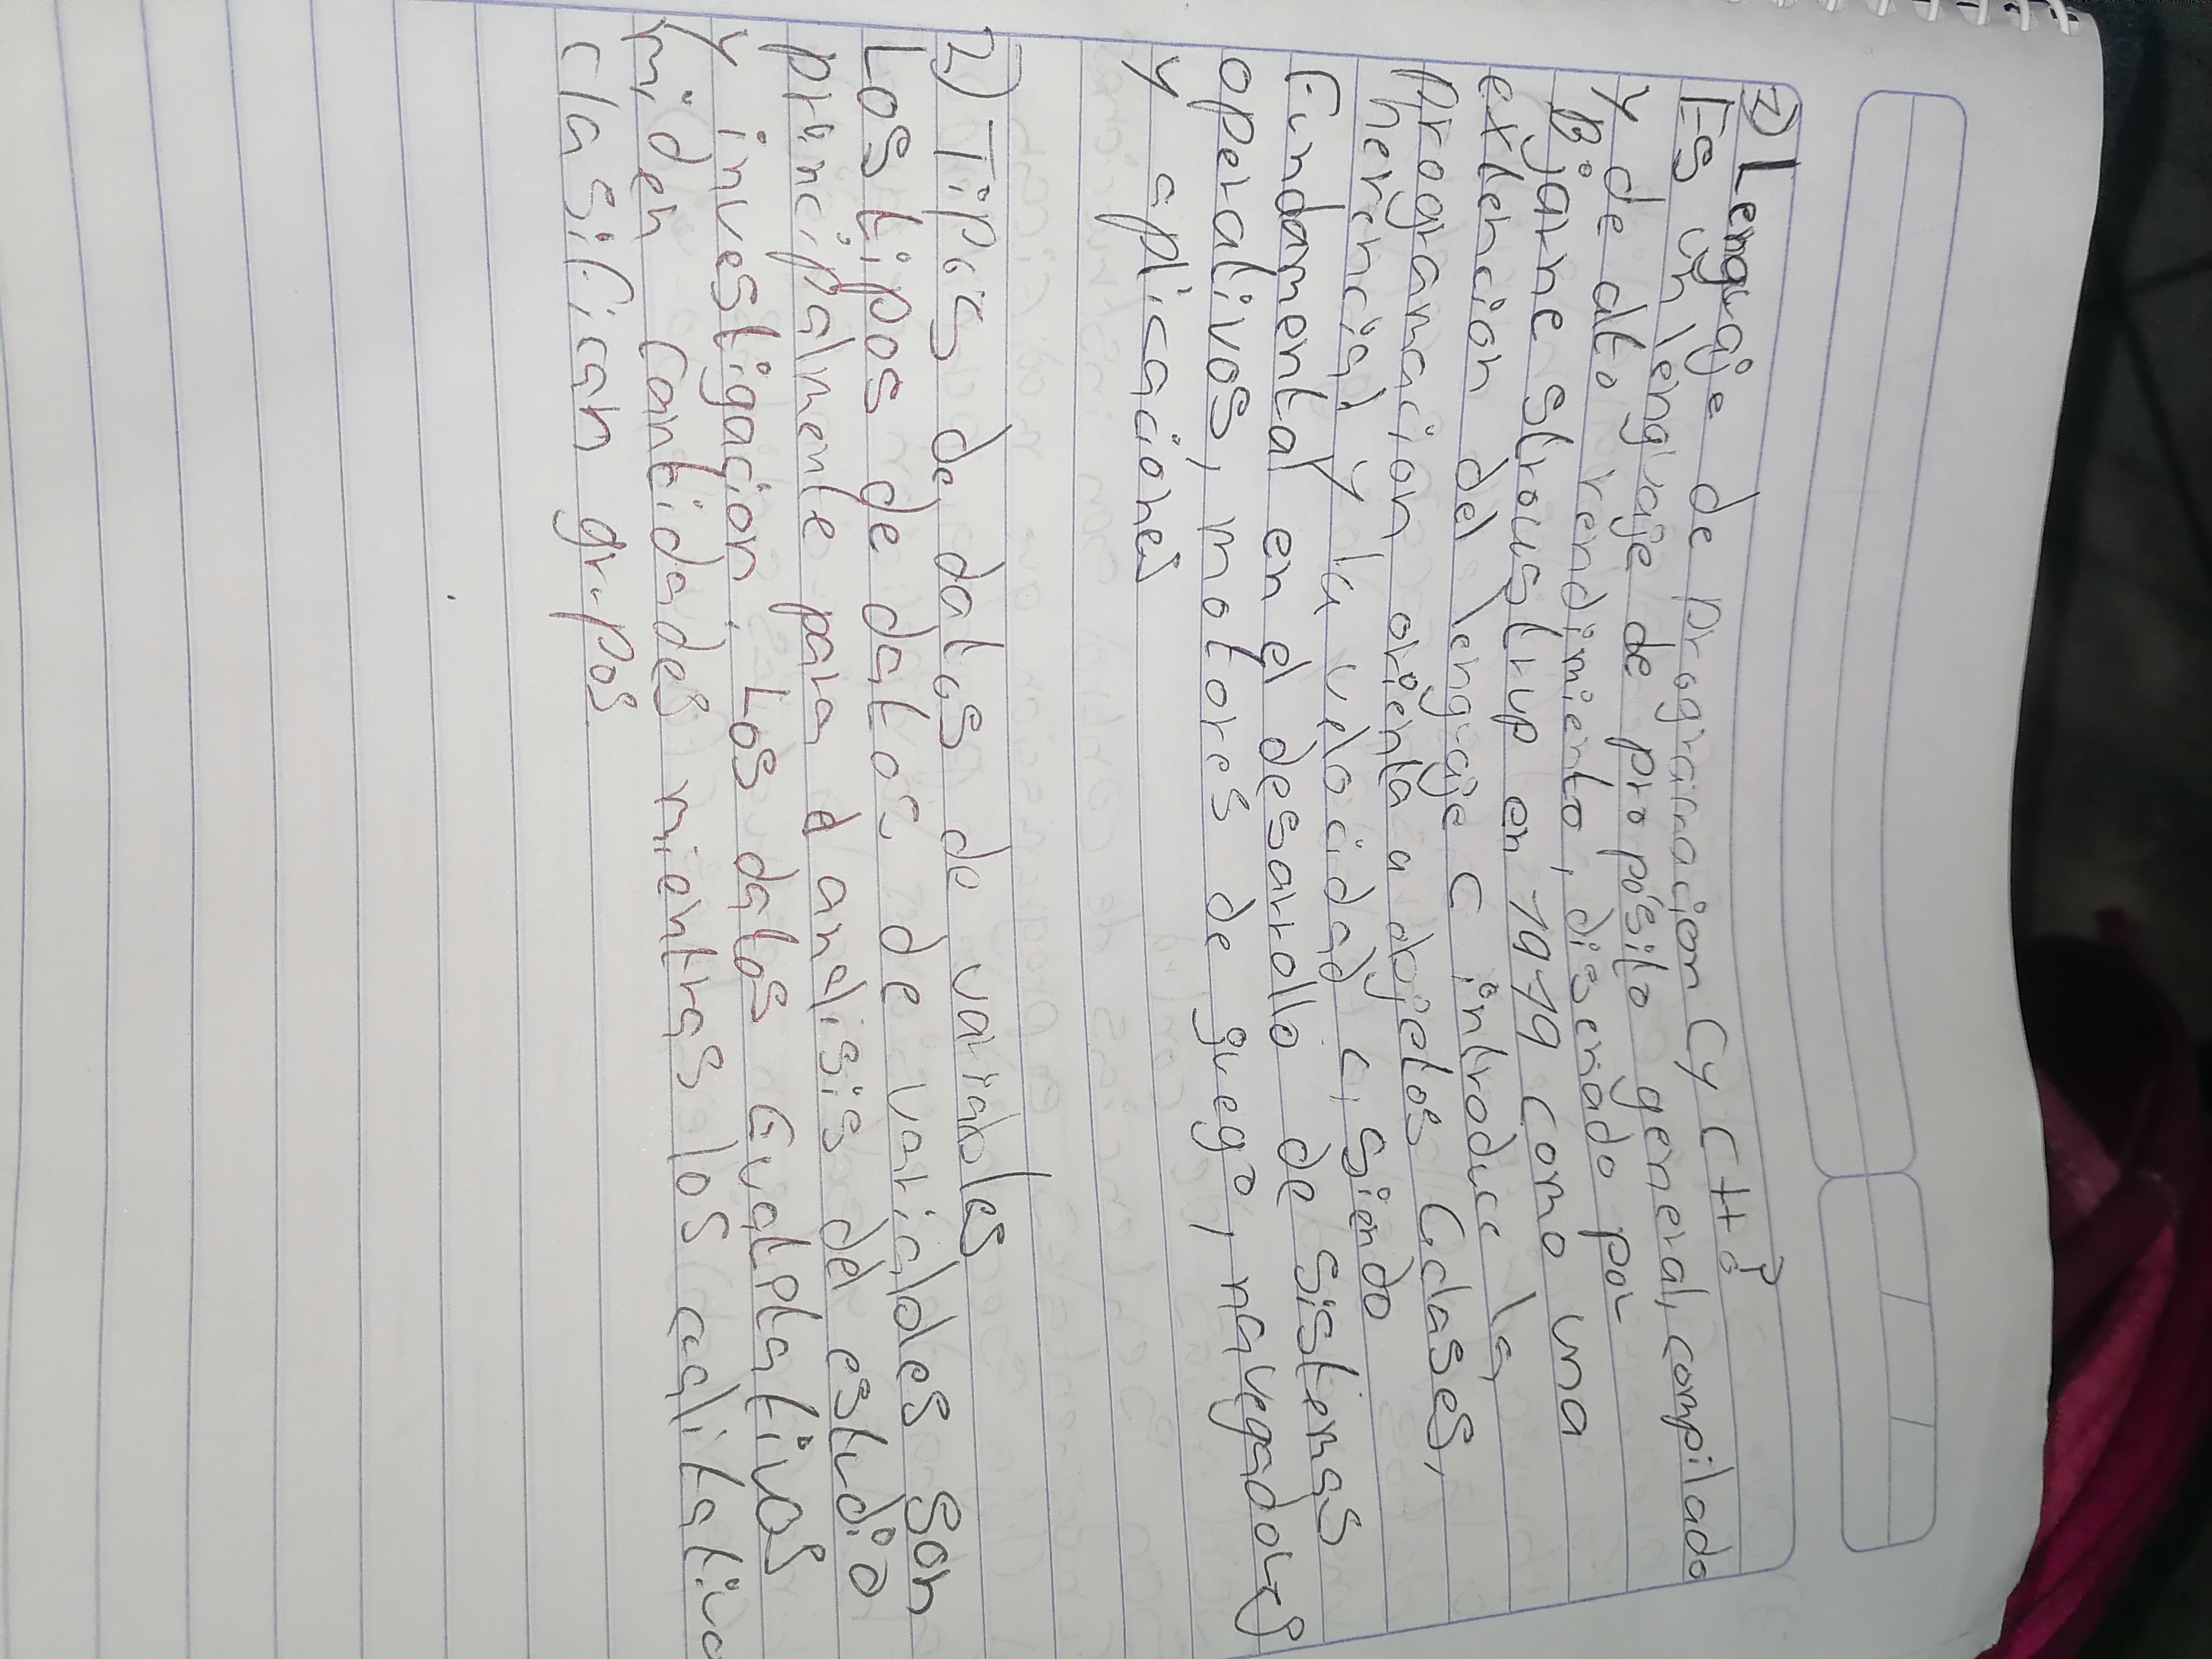 1) Lenguaje de programacion C y C++
Es un lenguaje de propósito general, compilado
y de alto rendimiento, disenado por
Bjarne Stroustrup en 1979 como una
extencion del lenguaje C introduce la
programacion orienta a objetos (clases,
herencia) y la velocidad C, siendo
Fundamental en el desarrollo de sistemas
operativos, motores de juego, navegadores
y aplicaciones
2) Tipos de datos de variables
Los tipos de datos de variables son
principalmente para d analisis del estudio
y investigacion. Los datos
miden cantidades mientras los calitativa
clasifican grupos